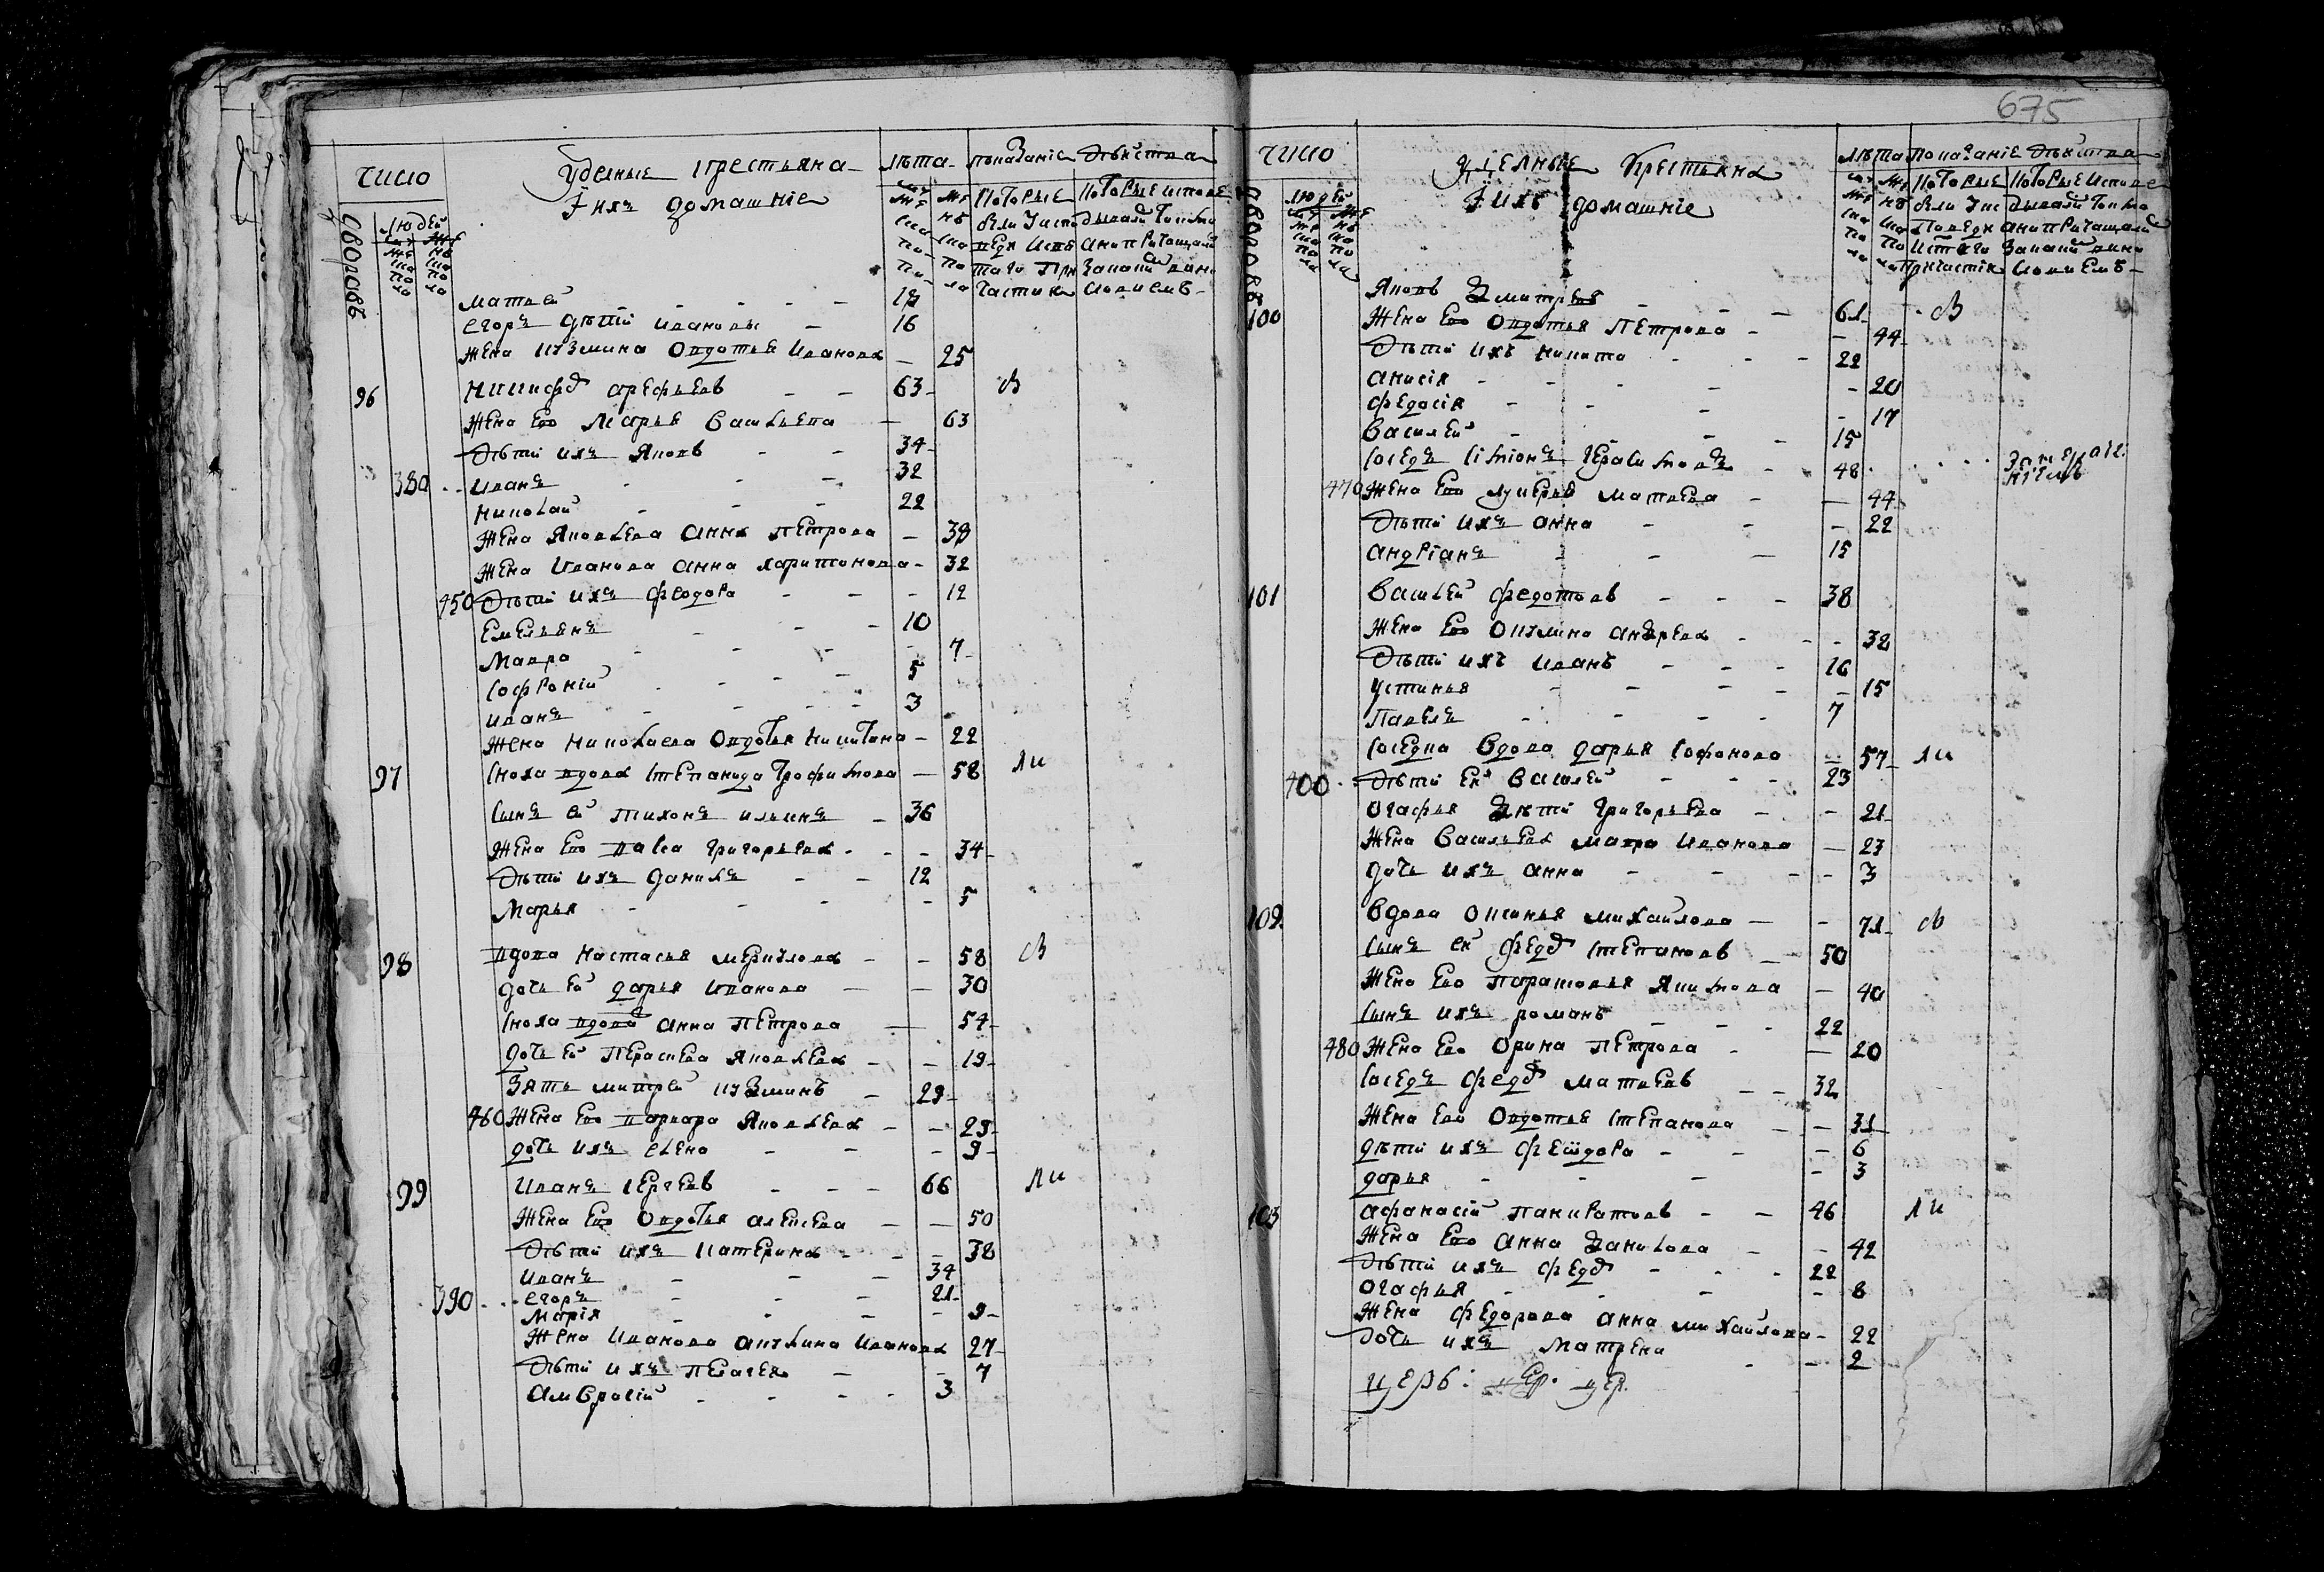 число
Уделные крестьяна
лѣта
показаніе дѣиства
дворовъ
людей
I ихъ домашніе
матвей - - - - 19
егоръ дѣти ивановы - 16
жена кузмина овдотья иванова - 25
96 никифоръ арефьевъ - - 63 в
жена ево марья васильева - 63
дѣти ихъ яковъ - - 34
380 иванъ - - - 32
николай - - - 22
жена яковлева анна петрова - 39
жена иванова анна харитонова - 32
450 дѣти ихъ феодора - - - 12
емельянъ - - - 10
мавра - - - 7
софроній - - - 5
иванъ - - - 3
жена николаева овдотья никитина - 22
97 сноха вдова степанида трофимова - 58 ли
сынъ ей тихонъ ильинъ - 36
жена ево васса григорьева - - 34
дѣти ихъ данила - - 12
марья - - - - 5
98 вдова настасья - - 58 в
дочь ей дарья иванова - - 30
сноха вдова анна петрова - 54
дочь ей пераскева яковлева - - 19
зять митрей кузминъ - 29
460 жена ево варвара яковлева - - 29
дочь ихъ елена - - - 9
99 иванъ сергеевъ - - - 66 ли
жена ево овдотья алексева - - 50
дѣти ихъ катерина - - - 38
иванъ - - - 34
390 егоръ - - - 21
марія - - - - 9
жена иванова акулина иванова 27
дѣти ихъ пелагея - - 7
амвросій - - - - 3
675
число
Удѣлные крестьяна
лѣта показаніе дѣиства
дворовъ
людей
I ихъ домашніе
100 яковъ дмитревъ - - - 61 в
жена ево овдотья петрова - - 44
дѣти ихъ никита - - - 22
анисія - - - - - 20
федосія - - - - 17
василей - - - - 15
соседъ симіонъ герасимовъ - 48
470 жена ево лукерья матвева - - 44
дѣти ихъ анна - - - 22
андріанъ - - - 15
101 василей федотовъ - - - 38
жена ево окулина андрева - - - 32
дѣти ихъ иванъ - - - 16
устинья - - - - - 15
павелъ - - - - 7
соседка вдова дарья софонова - 57 ли
400 дѣти ея василей - - - 23
огафья дѣти григорьева - - 21
жена васильева мавра иванова - 23
дочь ихъ анна - - - - 3
102 вдова ксинья михайлова - - 71 в
сынъ ея федоръ степановъ - 50
жена ево парасковья якимова - 40
сынъ ихъ романъ - - - 22
480 жена ево орина петрова - - 20
соседъ федоръ матвевъ - - 32
жена ево овдотья степанова - - 31
дѣти ихъ феѡдора - - - 6
дарья - - - - 3
103 афанасій панкратовъ - - 46 ли
жена ево анна данилова - - 42
дѣти ихъ федоръ - - - 22
огафья - - - - 8
жена федорова анна михайлова - 22
дочь ихъ матрена - - 2